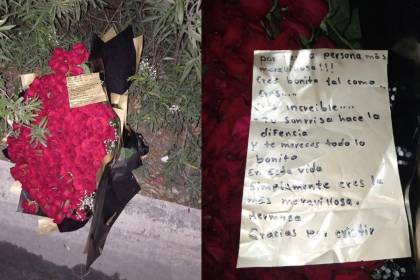 por ser la persona más
maravillosa!!!
Eres bonita tal como
eres...
increible...
Tu sunrisa hace la
difencia
Y te mereces todo lo
bonito
En esta vida
Simplemente eres la
más maravillosa.
Hermosa
Gracias por existir